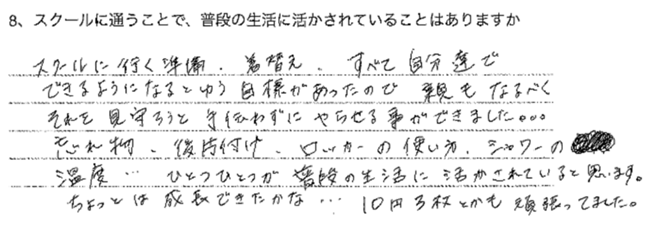 8、スクールに通うことで、普段の生活に活かされていることはありますか
スクールに行く準備、着替え、すべて自分達で
できるようになるとゆう目標があったので 親もなるべく
それを見守ろうと手伝わずにやらせる事ができました...
忘れ物、後片付け、ロッカーの使い方、シャワーの
温度… ひとつひとつが普段の生活に活かされていると思います。
ちょっとは成長できたかな… 10円3枚とかも頑張ってました。